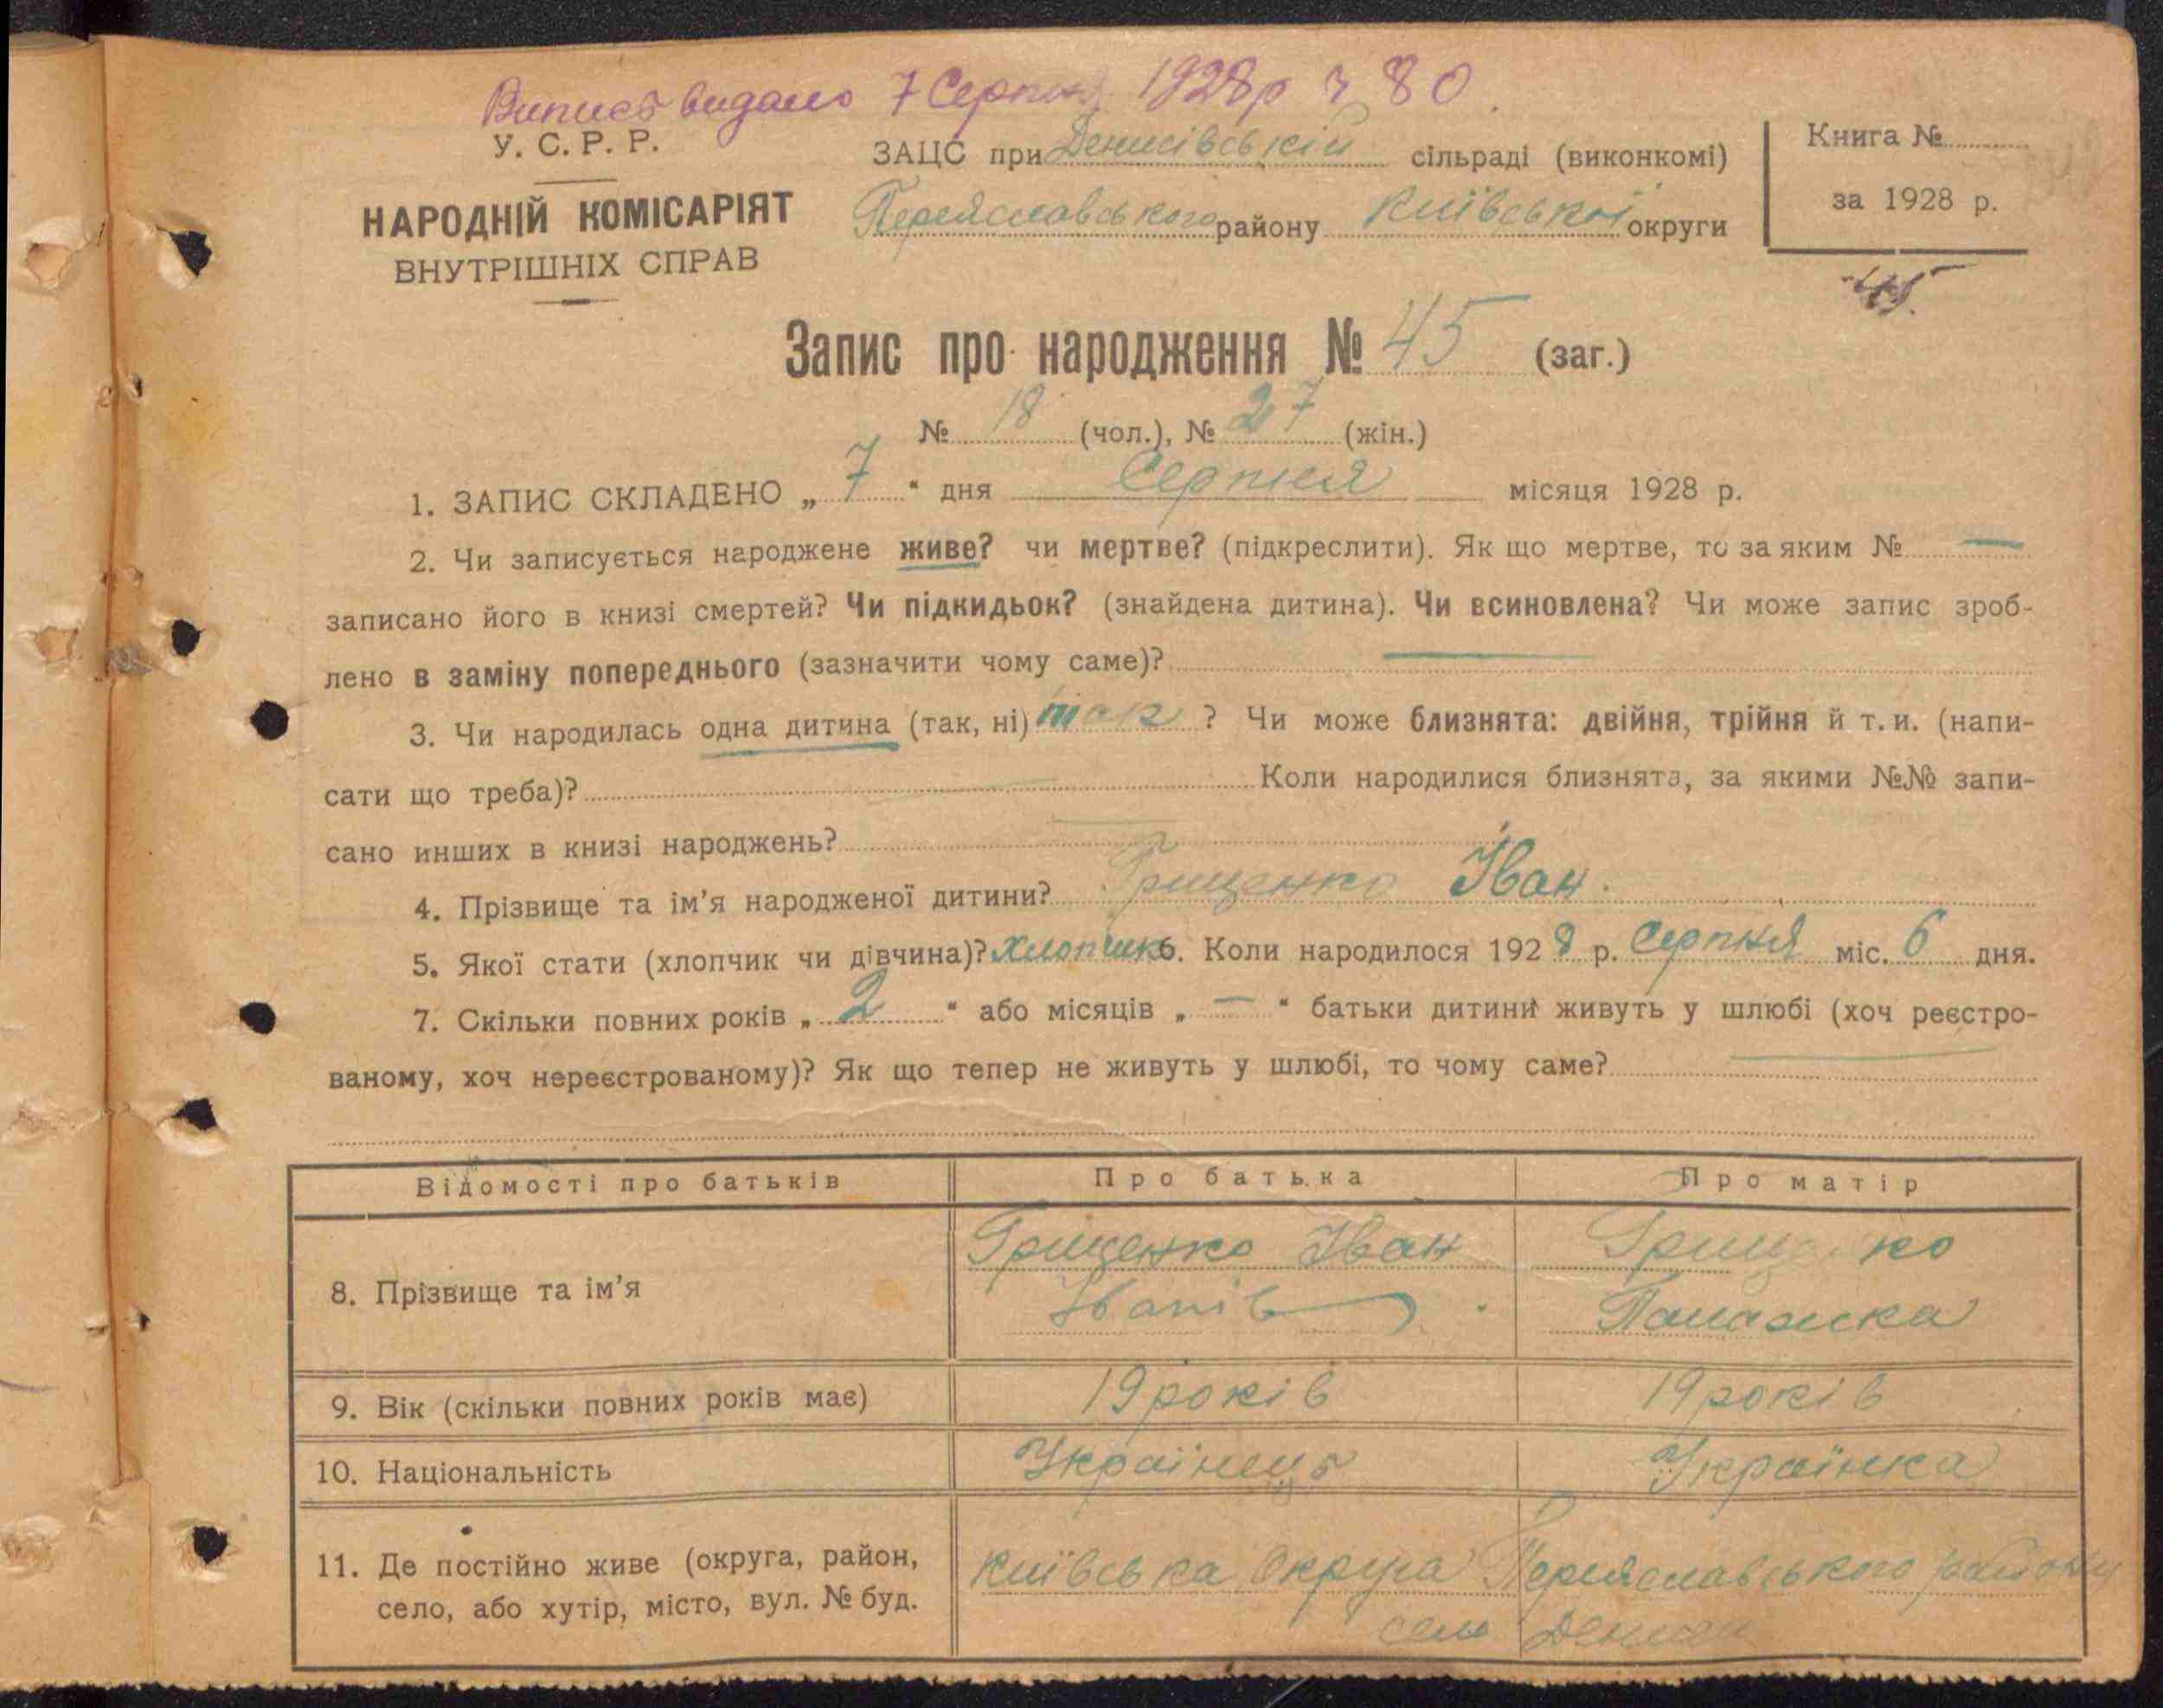 Випись видано 7 Серпня 1928р ч 80.
У. С. Р. Р.
НАРОДНІЙ КОМІСАРІЯТ
ВНУТРІШНІХ СПРАВ
ЗАЦС при Денисівській сільраді (виконкомі)
Переяславського району Київської округи
Книга №
за 1928 р.
45.
Запис про народження № 45 (заг.)
№ 18 (чол.), № 27 (жін.)
1. ЗАПИС СКЛАДЕНО „ 7 “ дня Серпня місяця 1928 р.
2. Чи записується народжене живе? чи мертве? (підкреслити). Як що мертве, то за яким № —
записано його в книзі смертей? Чи підкидьок? (знайдена дитина). Чи всиновлена? Чи може запис зроб-
лено в заміну попереднього (зазначити чому саме)? —
3. Чи народилась одна дитина (так, ні) так ? Чи може близнята: двійня, трійня й т. и. (напи-
сати що треба)? — Коли народилися близнята, за якими №№ запи-
сано инших в книзі народжень? —
4. Прізвище та ім’я народженої дитини? Грищенко Іван.
5. Якої стати (хлопчик чи дівчина)? Хлопчик 6. Коли народилося 1928 р. Серпня міс. 6 дня.
7. Скільки повних років „ 2 “ або місяців „ — “ батьки дитини живуть у шлюбі (хоч реєстро-
ваному, хоч нереєстрованому)? Як що тепер не живуть у шлюбі, то чому саме? —
Відомості про батьків Про батька Про матір
8. Прізвище та ім’я
Грищенко Іван
Іванів
Грищенко
9. Вік (скільки повних років має) 19 років 19 років
10. Національність Українець Українка
11. Де постійно живе (округа, район,
село, або хутір, місто, вул. № буд.
Київська Округа Переяславського району
село Дениси